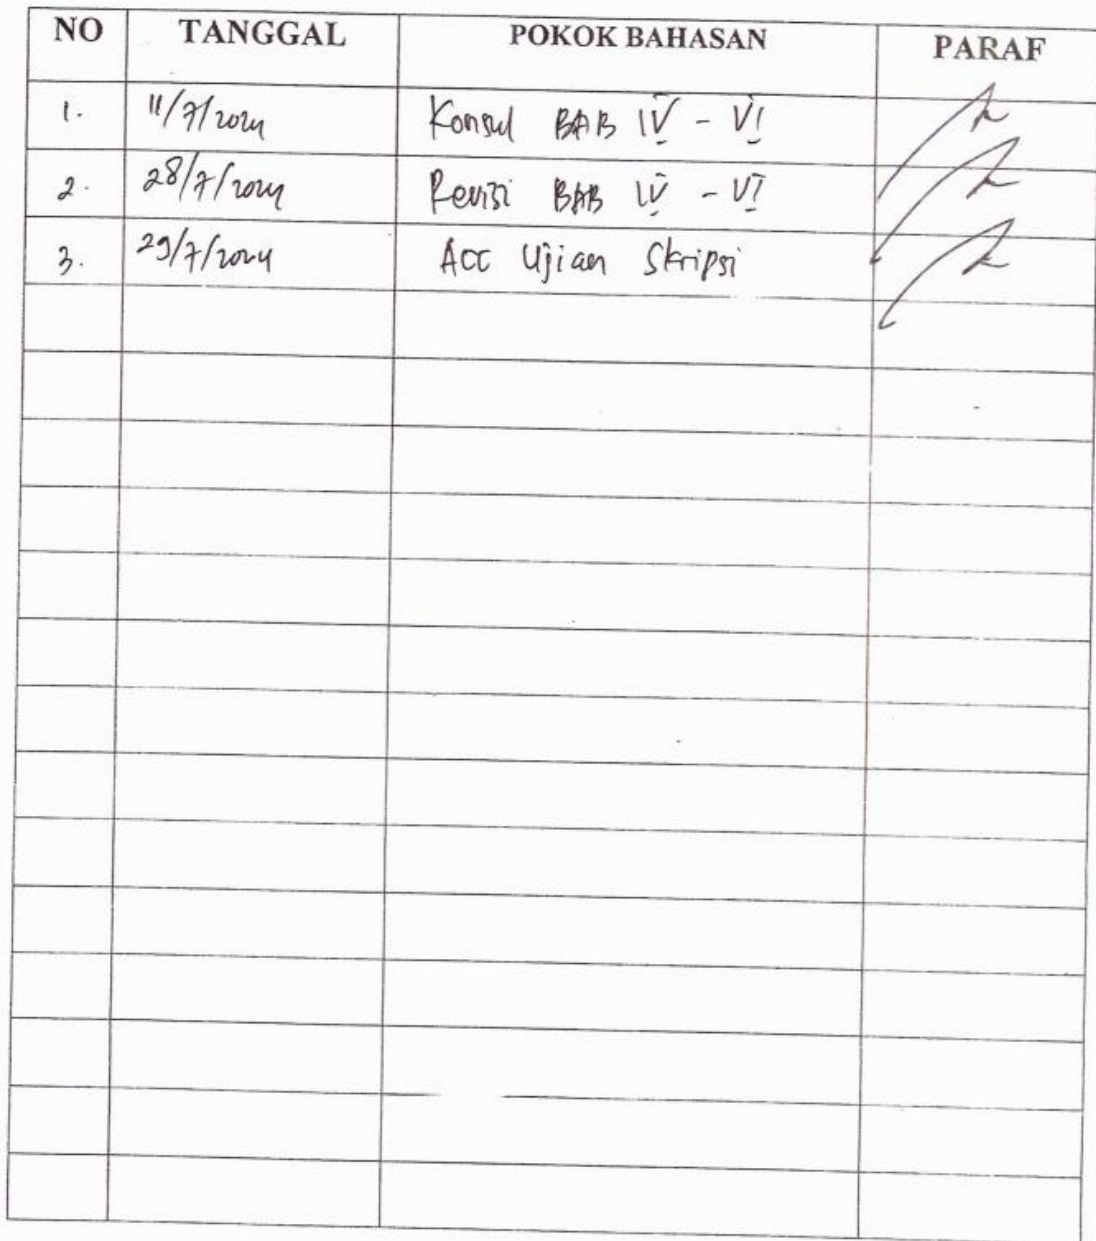 NO TANGGAL POKOK BAHASAN PARAF
1. 11/7/2024 Konsul BAB IV - VI
2. 28/7/2024 Revisi BAB IV - VI
3. 29/7/2024 Acc Ujian Skripsi